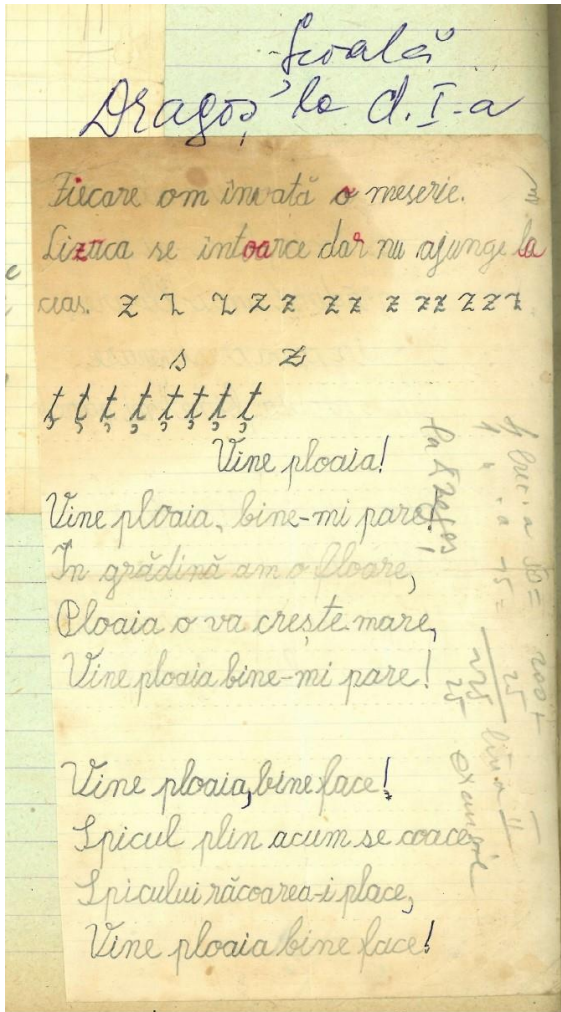 Școală
Dragoș la cl. I-a
Fiecare om învată o meserie.
Lizuca se întoarce dar nu ajunge la
ceas. z z z z z z z z z z z z z
s z
ț ț ț ț ț ț ț ț
Vine ploaia!
Vine ploaia, bine-mi pare!
În grădină am o floare,
Ploaia o va crește mare,
Vine ploaia bine-mi pare!
Vine ploaia, bine face!
Spicul plin acum se coace
Spicului răcoarea-i place,
Vine ploaia bine face!
4 buc. a 50 = 200 +
25
225
25